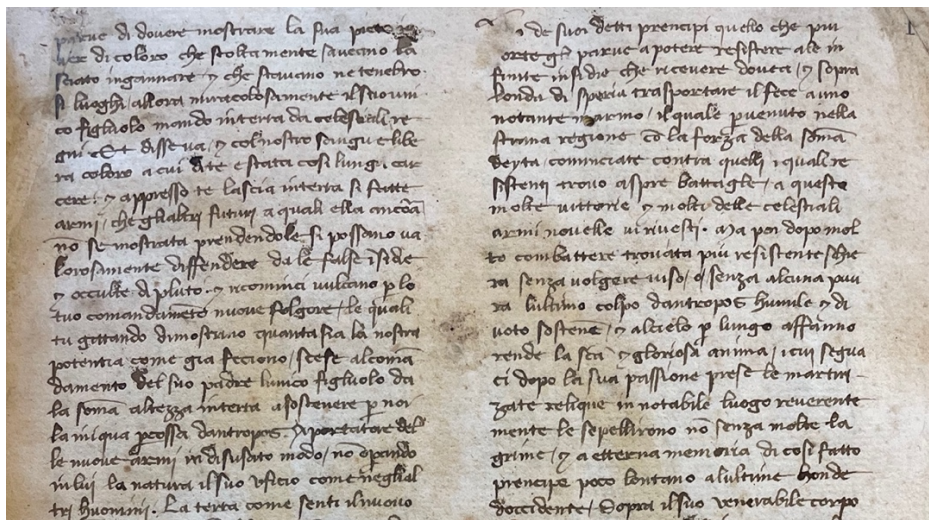 parve di dovere mostrare la sua pieta
ver di coloro che stoltamente saveano la
sciato ingannare ⁊ che stavano ne tenebro
si luoghi / allora miracolosamente il suo uni
co figliuolo mando in terra da celestiali re
gni et disse va / ⁊ col nostro sangue libe
ra coloro a cui dite e stata cosi lunga car
cere : ⁊ appresso te lascia in terra si fatte
armi / che gli altri futuri a quali ella ancōa
nō se mostrata prendendole si possano va
lorosamente diffendere da le false insidie
⁊ occulte di pluto . ⁊ ricominci vulcano p lo
tuo comandamēto nuove folgore / le quali
tu gittando dimostrino quanta sia la nostra
potentia come gia feciono / scese al comā
damento del suo padre lunico figliuolo da
la somā altezza in terra a sostenere p noi
la iniqua pcossa dantropos . Aportatore del
le nuove armi in disusato modo / nō opando
in lui la natura il suo uficio come negli al
tri huomini . La terra come senti il nuovo
de suoi detti prencipi quello che piu
forte gl parve a potere resistere ale in
finite insidie che ricevere dovea / ⁊ sopra
londa di speria trasportare il fece a uno
notante marmo / il quale pvenuto nella
strana regione cō la forza della somā
deyta / cominciate contra quelli i quali re
sistenti trovo aspre battaglie / a questo
molte vittorie ⁊ molti delle celestiali
armi novelle vi rivesti . Ma poi dopo mol
to combattere trovata piu resistente schie
ra senza volgere viso / o senza alcuna pau
ra lultimo colpo dantropos humile ⁊ di
voto sostene / ⁊ al cielo p lungo affanno
rende la scā ⁊ gloriosa anima / i cui segua
ci dopo la sua passione prese le martiri
zate relique in notabile luogo reverente
mente le sepellirono nō senza molte la
grime / ⁊ a etterna memoria di cosi fatto
prencipe poco lontano alultime honde
doccidente / sopra il suo venerabile corpo